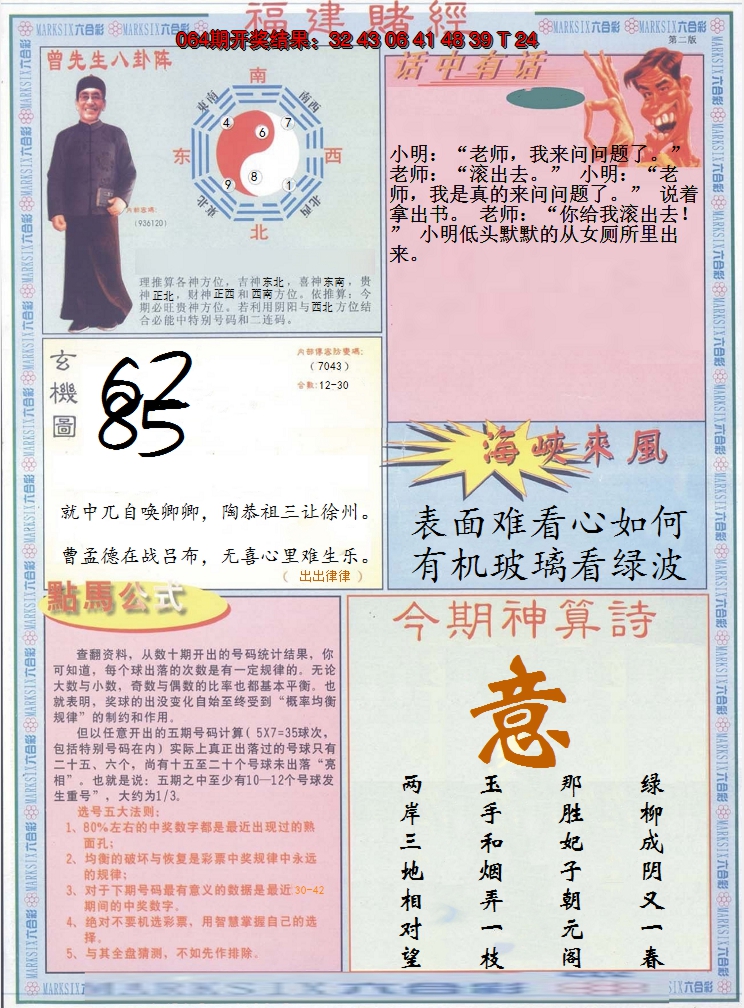 福建賭經
MARKSIX六合彩 MARKSIX六合彩 MARKSIX六合彩 MARKSIX六合彩
064期开奖结果：32 43 06 41 48 39 T 24
第二版
曾先生八卦阵
南
东南
西南
4
7
6
东
西
8
9
1
东北
西北
北
内部密码:
(936120)
理推算各神方位，吉神东北，喜神东南，贵
神正北，财神正西和西南方位。依推算：今
期必旺贵神方位。若利用阴阳与西北方位结
合必能中特别号码和二连码。
话中有话
小明：“老师，我来问问题了。”
老师：“滚出去。” 小明：“老
师，我是真的来问问题了。” 说着
拿出书。 老师：“你给我滚出去！
” 小明低头默默的从女厕所里出
来。
玄機圖
62
85
内部传密秒密碼:
(7043)
合数:12-30
就中兀自唤卿卿，陶恭祖三让徐州。
曹孟德在战吕布，无喜心里难生乐。
（ 出出律律 ）
海峽來風
表面难看心如何
有机玻璃看绿波
點馬公式
查翻资料，从数十期开出的号码统计结果，你
可知道，每个球出落的次数是有一定规律的。无论
大数与小数，奇数与偶数的比率也都基本平衡。也
就表明，奖球的出没变化自始至终受到“概率均衡
规律”的制约和作用。
但以任意开出的五期号码计算( 5X7=35球次，
包括特别号码在内) 实际上真正出落过的号球只有
二十五、六个，尚有十五至二十个号球未出落“亮
相”。也就是说：五期之中至少有10—12个号球发
生重号”，大约为1/3。
选号五大法则:
1、80%左右的中奖数字都是最近出现过的熟
面孔；
2、均衡的破坏与恢复是彩票中奖规律中永远
的规律；
3、对于下期号码最有意义的数据是最近30-42
期间的中奖数字。
4、绝对不要机选彩票，用智慧掌握自己的选
择。
5、与其全盘猜测，不如先作排除。
今期神算詩
意
绿柳成阴又一春
那胜妃子朝元阁
玉手和烟弄一枝
两岸三地相对望